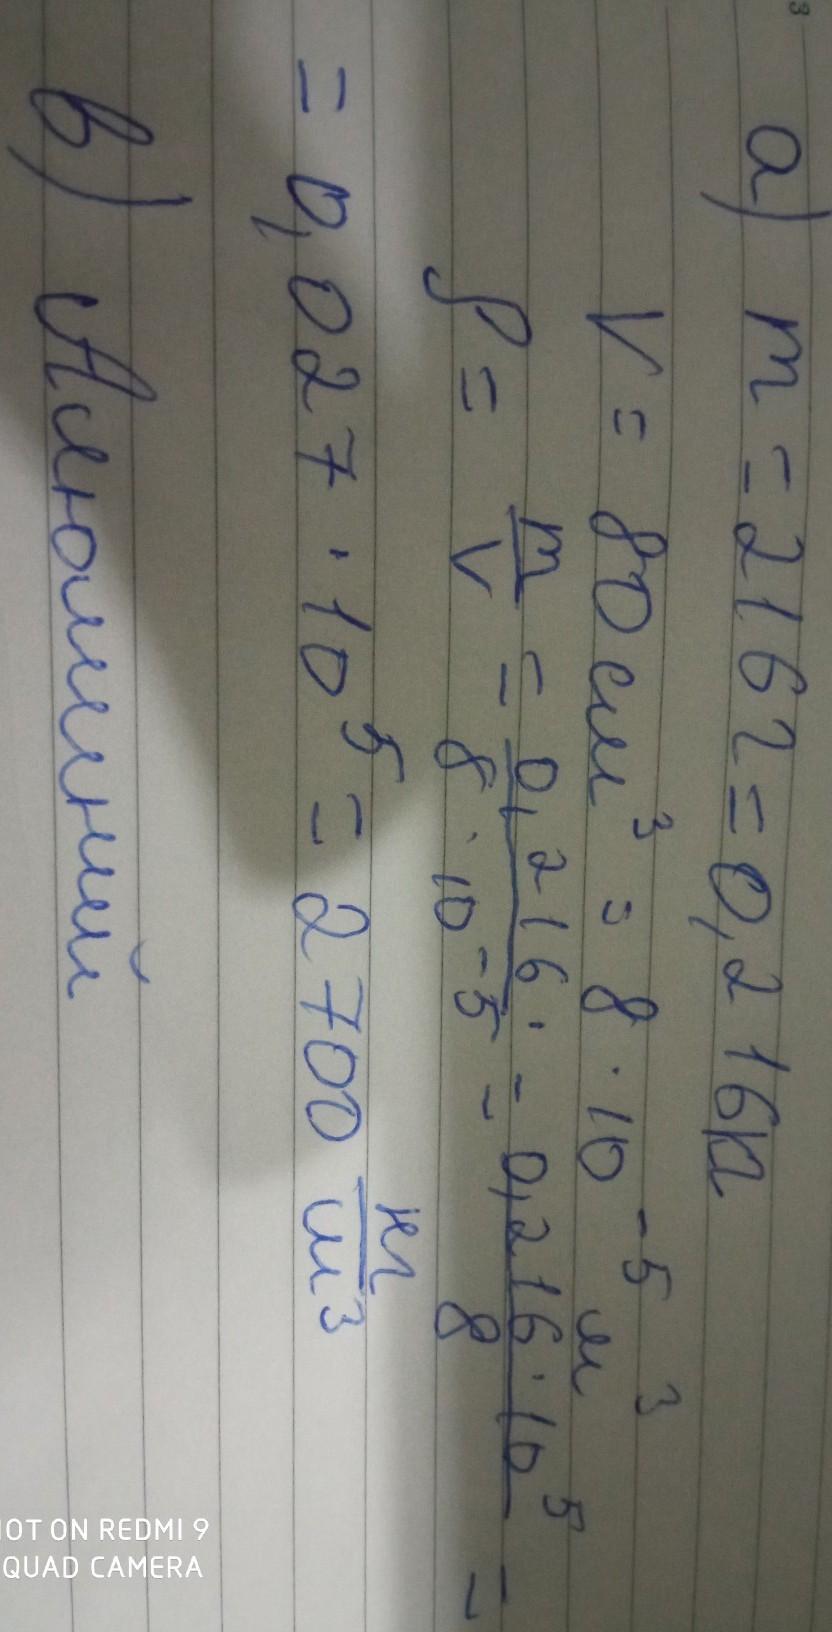 а) m = 216 г = 0,216 кг
V = 80 см³ = 8 · 10⁻⁵ м³
ρ = m/V = 0,216/8 · 10⁻⁵ = 0,216 · 10⁵/8 =
= 0,027 · 10⁵ = 2700 кг/м³
в) Алюминий
SHOT ON REDMI 9
QUAD CAMERA